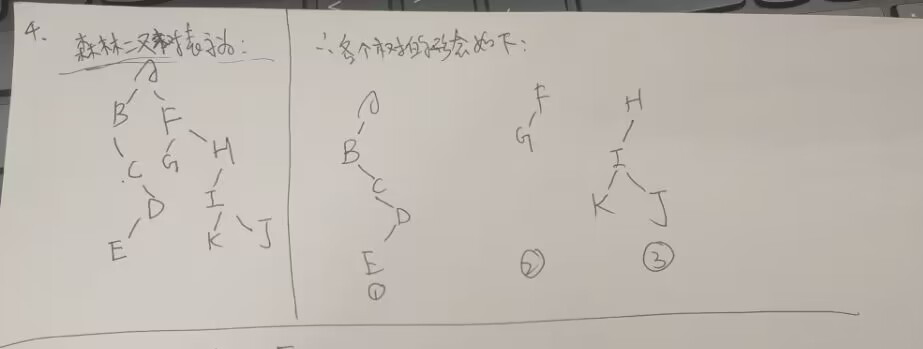 4.
森林二叉树表示为:
A
B F
C G H
D I
E K J
∴各个树的形态如下:
A
B
C
D
E
①
F
G
②
H
I
K J
③